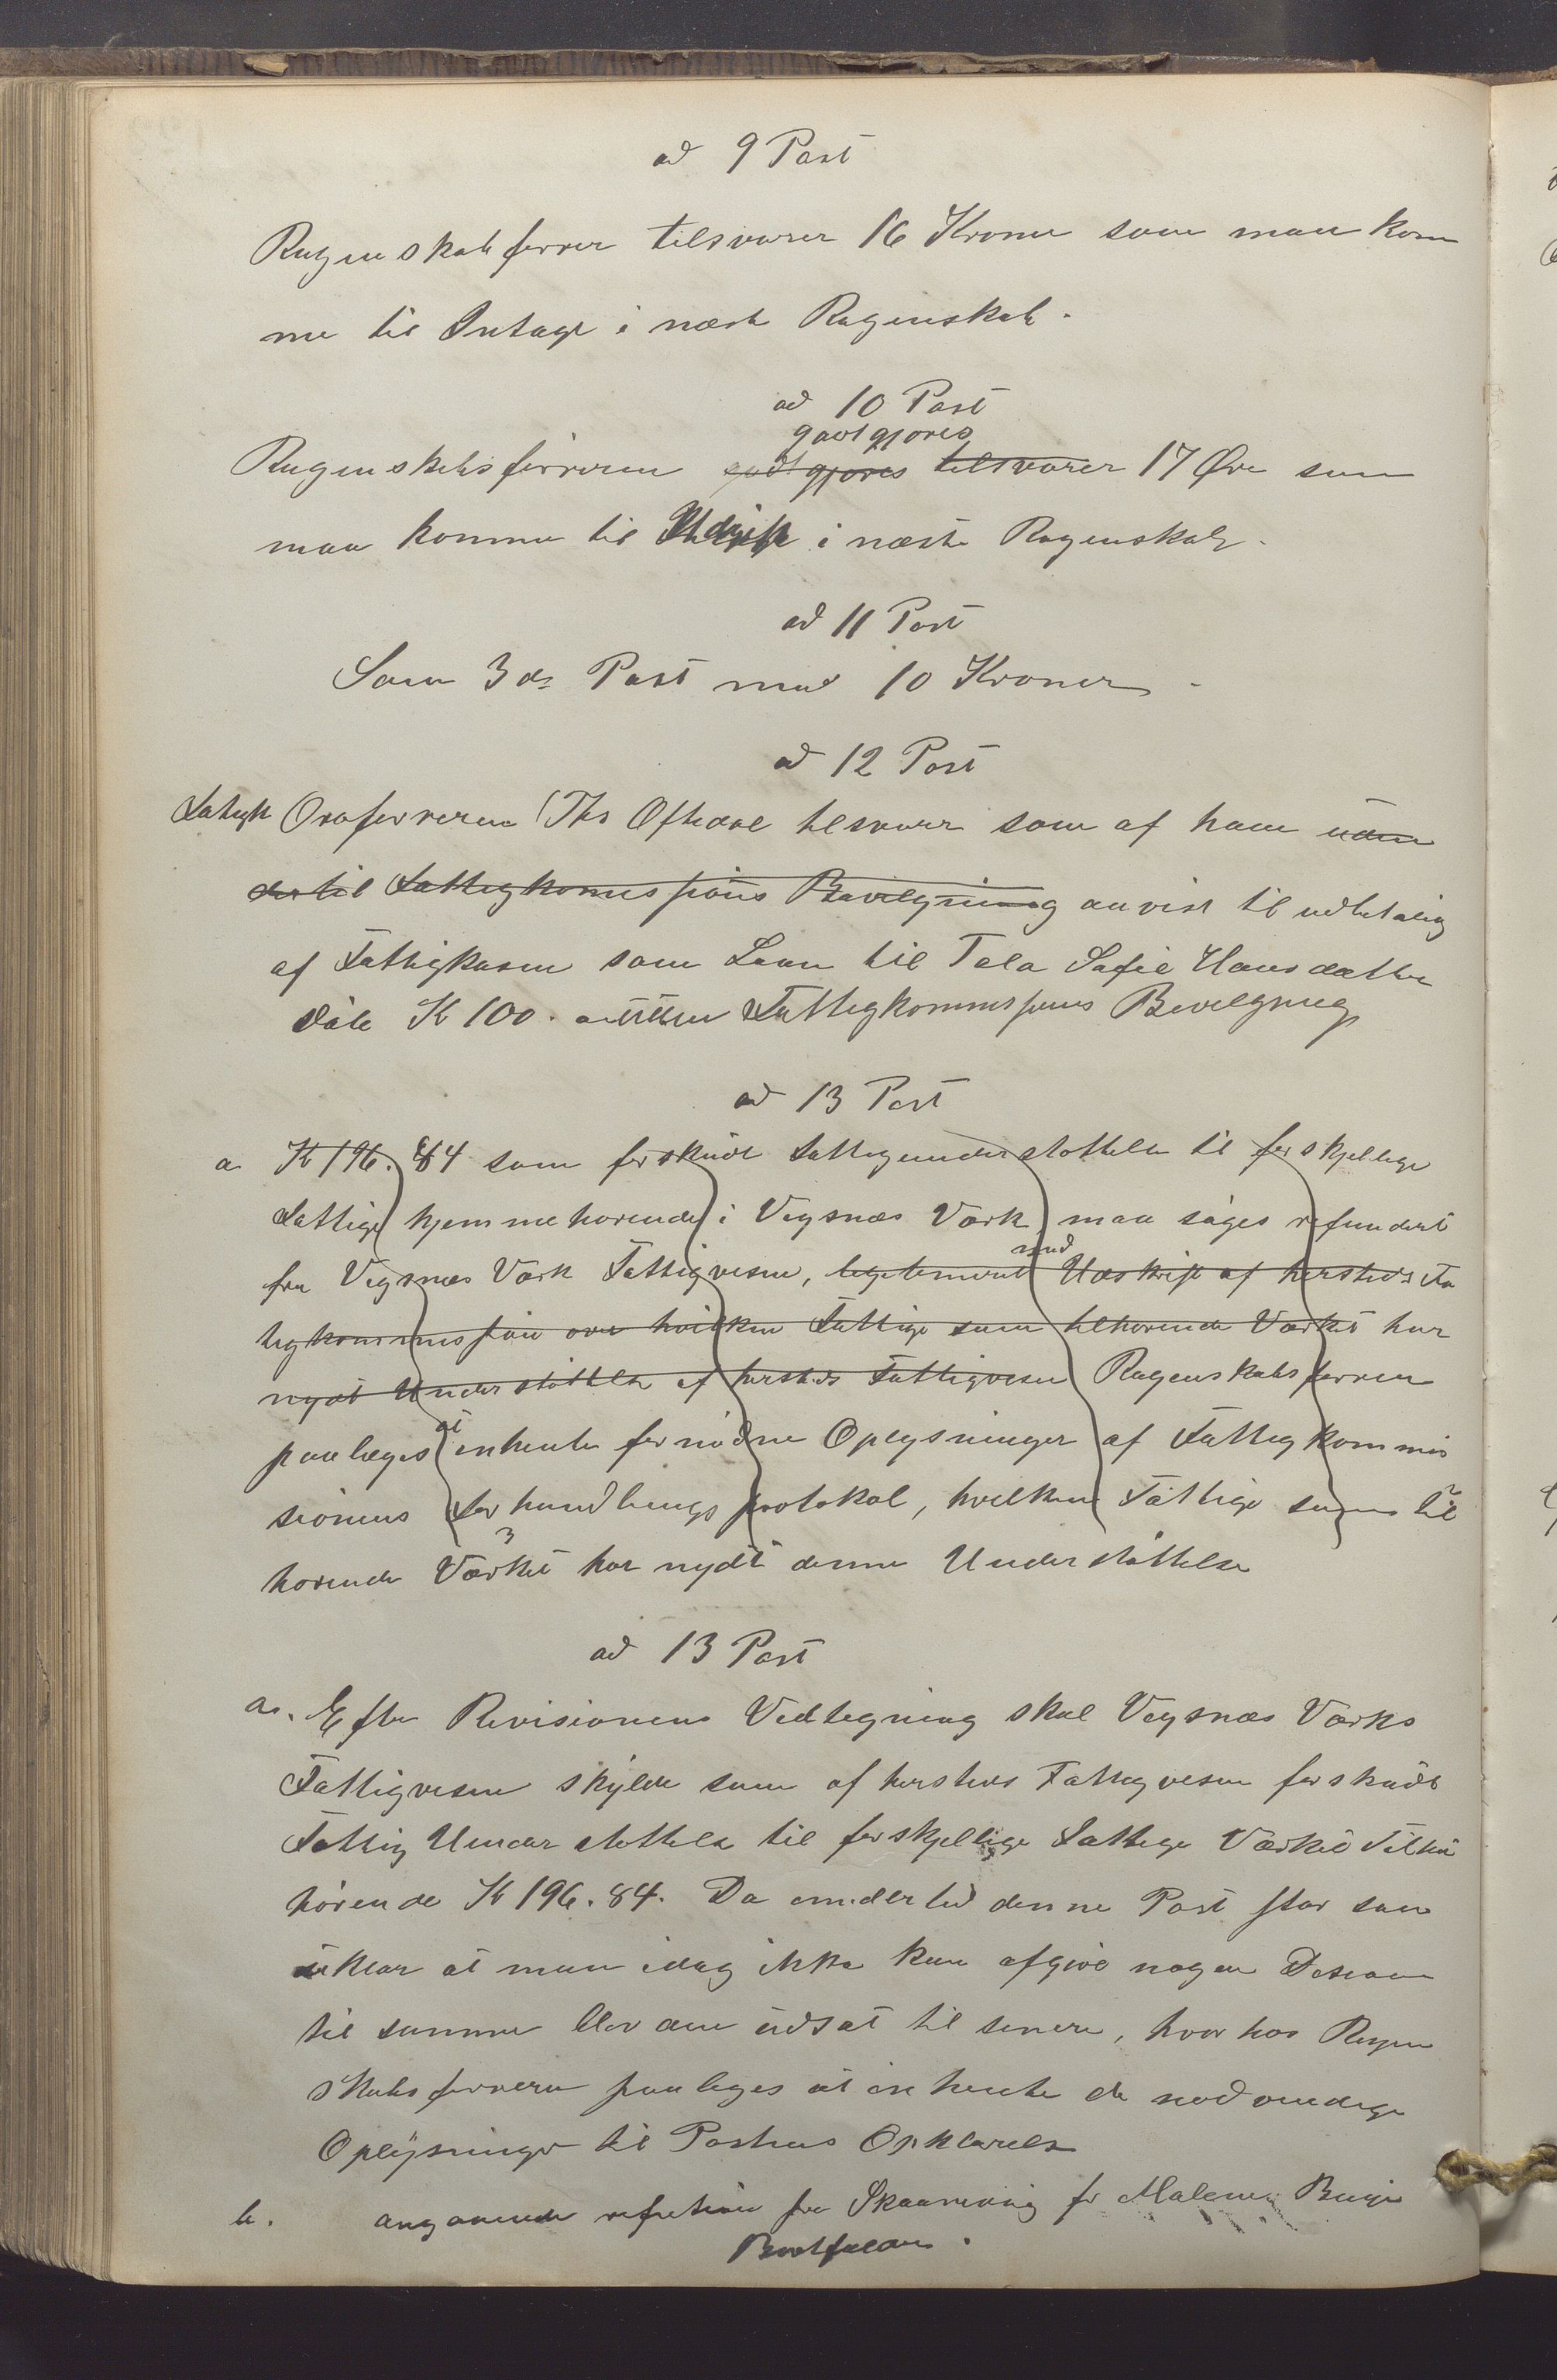 ad 9 Post
Regnskabsfører tilsvarer 16 Kroner som maa kom
me til Intægt i næste Regnskab.
ad 10 Post
godtgjøres
Regnskabsføreren godtgjøres tilsvarer 17 Øre som
maa komme til Udgift i næste Regenskab.
ad 11 Post
Som 3de Post med 10 Kroner
ad 12 Post
Fatigk Ordføreren Ths Oftedal tilsvarer som af ham uden
dertil Fattigkommissions Bevilgning anvist til udbetaling
af Fattigkassen som Laan til Tala Sofie Hansdatter
Dale K 100. uden Fattigkommissions Bevilgning
ad 13 Post
a K 196.84 som forskudt Fattigunderstøttelse til forskjellige
Fattige hjemmehørende i Vigsnæs Værk maa søges refunderet
fra Vigsnæs Værk Fattigvesen, legitimeret med Udskrift af hersteds Fa
tigkommission over hvilken Fattige som tilhørende Værket har
nydt Understøttelse af hersteds Fattigvesen Regenskabsføreren
paalæges at indhente fornødne Oplysninger af Fattigkommis
sionens Forhandlingsprotokol, hvilken Fattige som til
hørende Værket har nydt denne Understøttelse
ad 13 Post
a. Efter Revisionens Vedtegning skal Vigsnæs Værks
Fattigvesen skylde som af hersteds Fattigvesen forskudt
Fattig Understøttelse til forskjellige Fattige Værket Tilhø
hørende K 196.84. Da emidlertid denne Post star saa
uklar at man idag ikke kan afgive nogen Decision
til samme blev den udsat til senere, hvorhos Regen
skabsføreren paalæges at inhente de nødvendige
Oplysninger til Postens Opklarelse
b. angaaende refution fra Skaanevig for Malene Børge